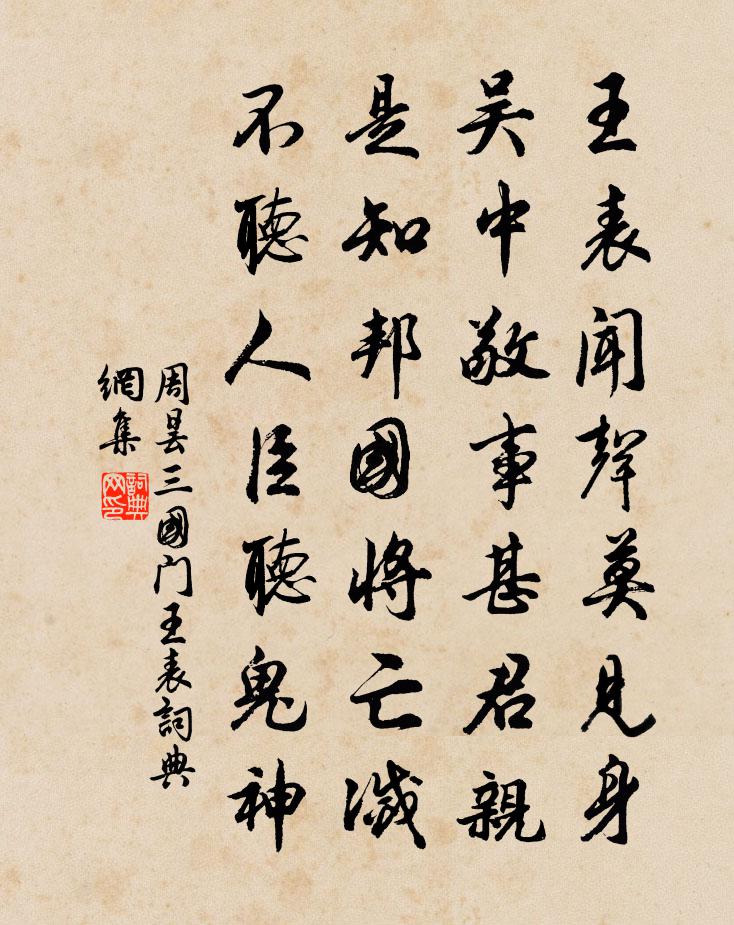 王表聞聲莫見身
吴中敬事甚君親
是知邦國將亡滅
不聽人臣聽鬼神
周昙三國门王表詞典
網集
詞典
网印